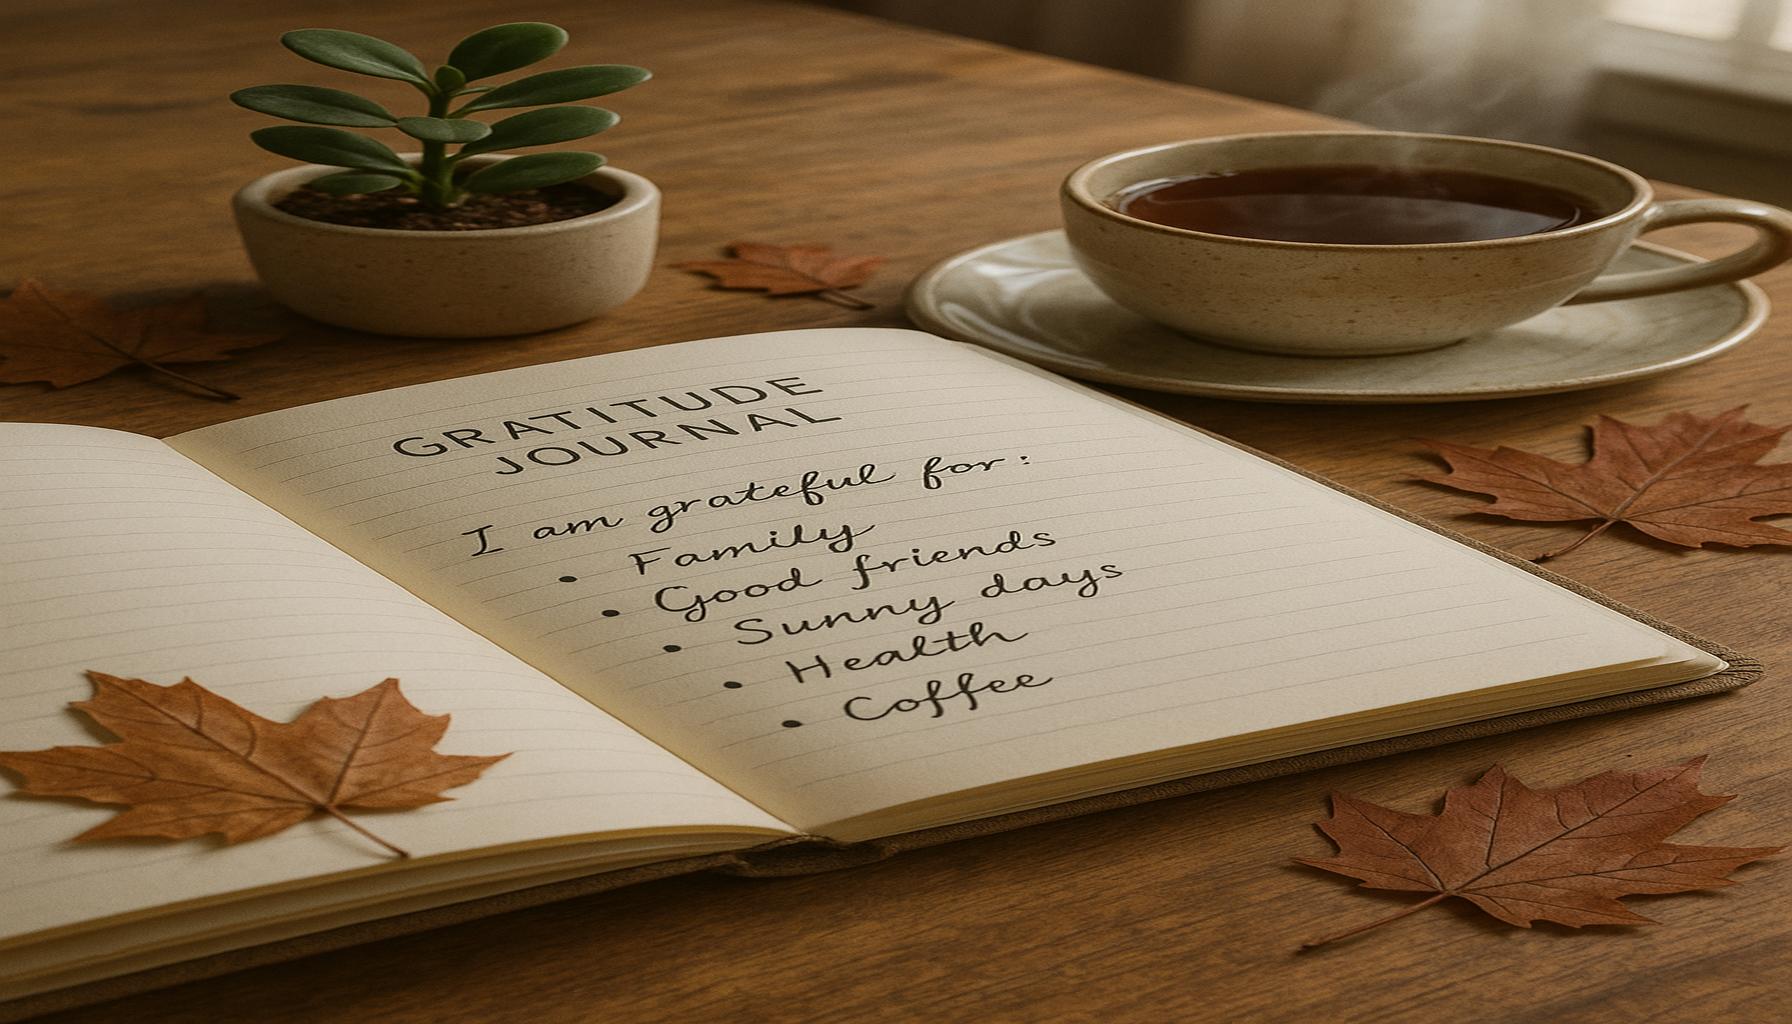 GRATITUDE
JOURNAL
I am grateful for:
• Family
• Good friends
• Sunny days
• Health
• Coffee